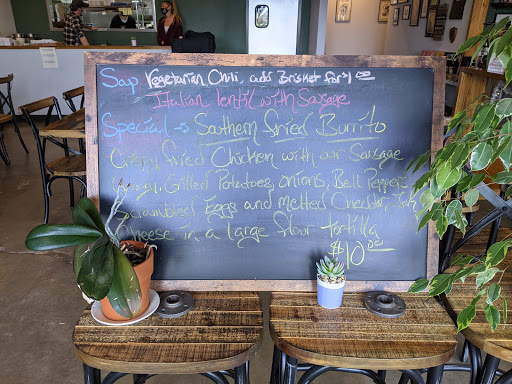 Soup Vegetarian Chili, add Brisket for $1.00
Italian lentil with Sausage
Special → Southern fried Burrito
Crispy fried Chicken with our Sausage
Gravy, Grilled Potatoes, onions, Bell Peppers
Scrambled Eggs and Melted Cheddar, Jack
Cheese in a large flour tortilla
$10.00